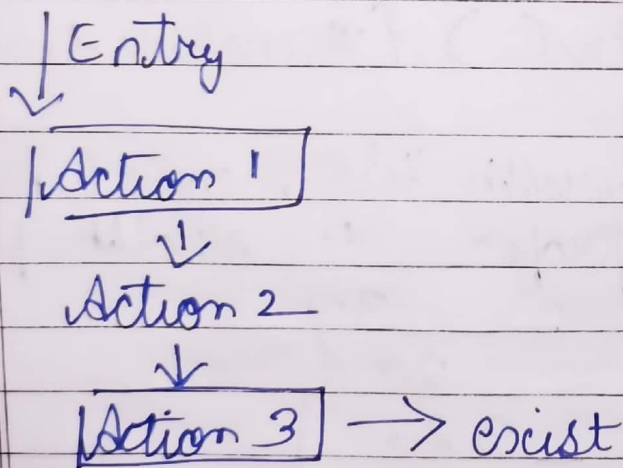 Entry
Action 1
Action 2
Action 3 → exist